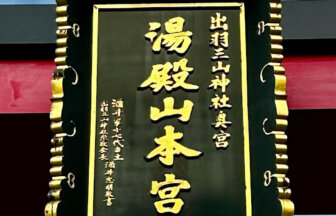 出羽三山神社奥宮
湯殿山本宮
酒井家十七代当主
出羽三山神社崇敬会長 酒井忠明敬書